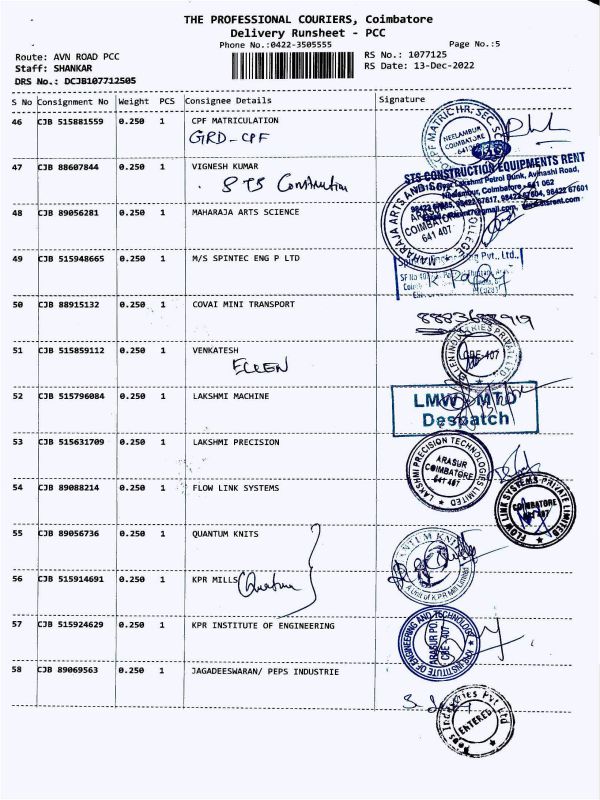 THE PROFESSIONAL COURIERS, Coimbatore
Delivery Runsheet - PCC
Phone No.:0422-3505555
Page No.:5
Route: AVN ROAD PCC
RS No.: 1077125
Staff: SHANKAR
RS Date: 13-Dec-2022
DRS No.: DCJB107712505
S No Consignment No Weight PCS Consignee Details Signature
46 CJB 515881559 0.250 1 CPF MATRICULATION
GRD-CPF
NEELAMBUR
COIMBATORE
47 CJB 88607844 0.250 1 VIGNESH KUMAR
STS Construction
STS CONSTRUCTION EQUIPMENTS RENT
48 CJB 89056281 0.250 1 MAHARAJA ARTS SCIENCE
MAHARAJA ARTS AND COLLEGE
COIMBATORE
641 407
49 CJB 515948665 0.250 1 M/S SPINTEC ENG P LTD
Pvt., Ltd.,
50 CJB 88915132 0.250 1 COVAI MINI TRANSPORT
8883688919
51 CJB 515859112 0.250 1 VENKATESH
ELLEN
ELLEN INDUSTRIES PRIVATE LTD
CBE-407
52 CJB 515796084 0.250 1 LAKSHMI MACHINE
LMW MTD
Despatch
53 CJB 515631709 0.250 1 LAKSHMI PRECISION
LAKSHMI PRECISION TECHNOLOGIES LIMITED
ARASUR
COIMBATORE
641 407
54 CJB 89088214 0.250 1 FLOW LINK SYSTEMS
FLOW LINK SYSTEMS PRIVATE LIMITED
COIMBATORE
641 407
55 CJB 89056736 0.250 1 QUANTUM KNITS
QUANTUM KNITS
A Unit of KPR Mill Limited
56 CJB 515914691 0.250 1 KPR MILLS
Quantum
57 CJB 515924629 0.250 1 KPR INSTITUTE OF ENGINEERING
KPR INSTITUTE OF ENGINEERING AND TECHNOLOGY
ARASUR PO.
CBE - 407
58 CJB 89069563 0.250 1 JAGADEESWARAN/ PEPS INDUSTRIE
Peps Industries Pvt Ltd
ENTERED